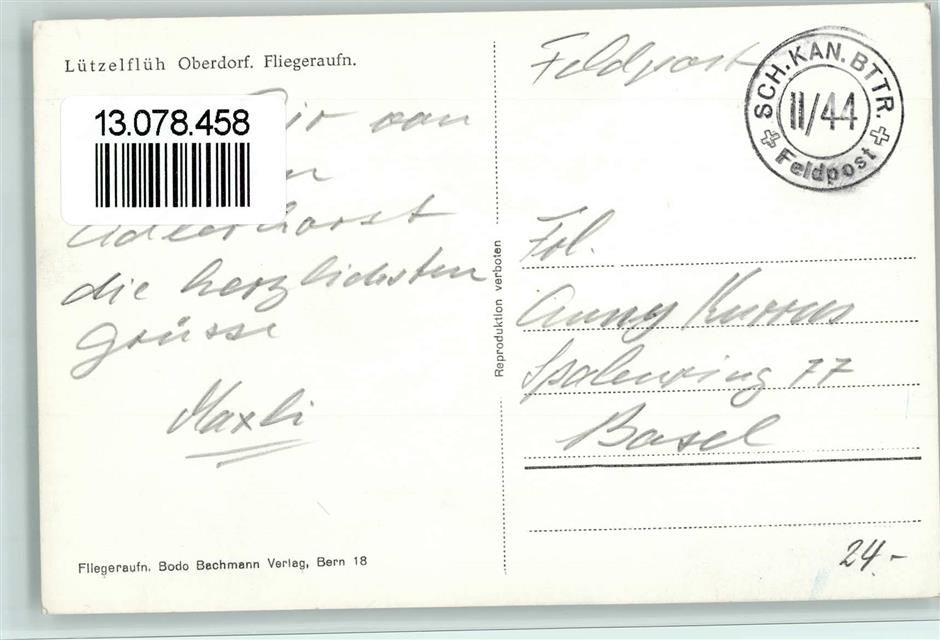 Lützelflüh Oberdorf. Fliegeraufn.
13.078.458
Dir von
Adlerhorst
die herzlichsten
Grüsse
Maxli
Fliegeraufn. Bodo Bachmann Verlag, Bern 18
Reproduktion verboten
Feldpost
SCH. KAN. BTTR.
II/44
Feldpost
Frl.
Anny Kurras
Spalenring 77
Basel
24.-